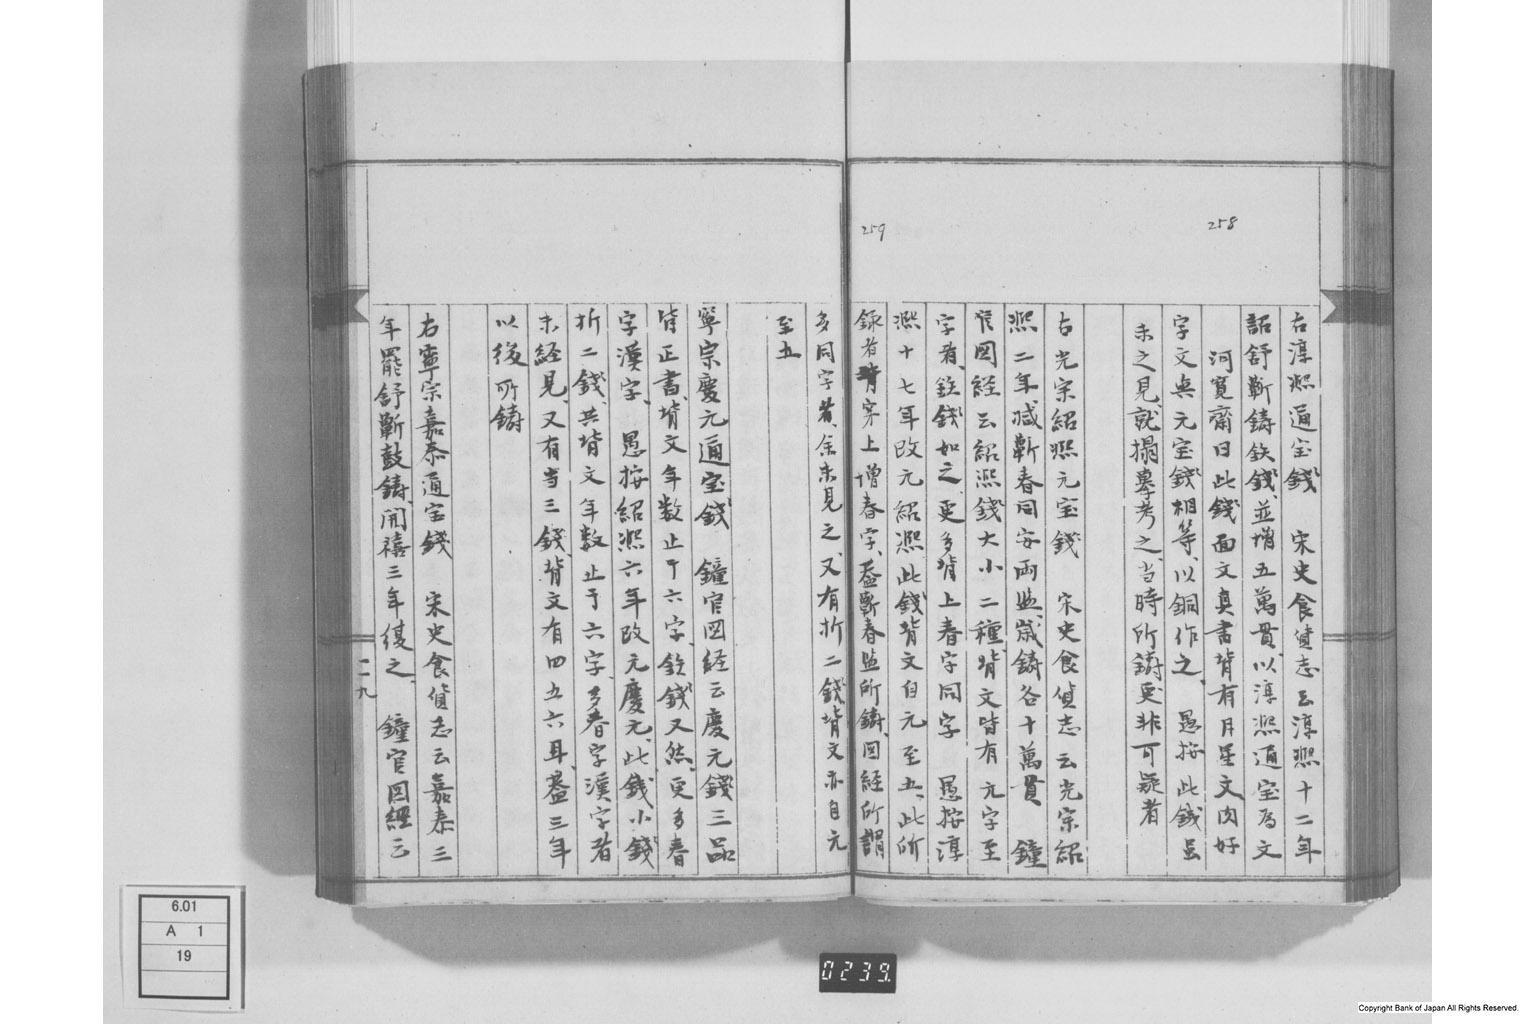 258
右淳熙通宝錢　宋史食貨志云淳熙十二年
詔舒蘄鋳鉄錢、並増五萬貫、以淳熙通宝為文
河寛齋曰此錢面文真書背有月星文肉好
字文與元宝錢相等、以銅作之、　愚按此錢虽
未之見、就搨摹考之、当時所鋳更非可疑者
右光宗紹熙元宝錢　宋史食貨志云光宗紹
熙二年、減蘄春同安両監、歳鋳各十萬貫　鐘
官図経云紹熙錢大小二種、背文皆有元字至
字者、鉄錢如之、更多背上春字同字　愚按淳
熙十七年改元紹熙、此錢背文自元至五、此所
259
録者背穿上増春字、蓋蘄春監所鋳、図経所謂
多同字者、余未見之、又有折二錢、背文亦自元
至五
寧宗慶元通宝錢　鐘官図経云慶元錢三品
皆正書、背文年数止于六字、鉄錢又然、更多春
字漢字、　愚按紹熙六年改元慶元、此錢小錢
折二錢、共背文年数止于六字、多春字漢字者
未経見、又有当三錢、背文有四五六耳、蓋三年
以後所鋳
右寧宗嘉泰通宝錢　宋史食貨志云嘉泰三
年罷舒蘄鼓鋳、開禧三年復之、　鐘官図経云
二九
6.01
A 1
19
0239
Copyright Bank of Japan All Rights Reserved.